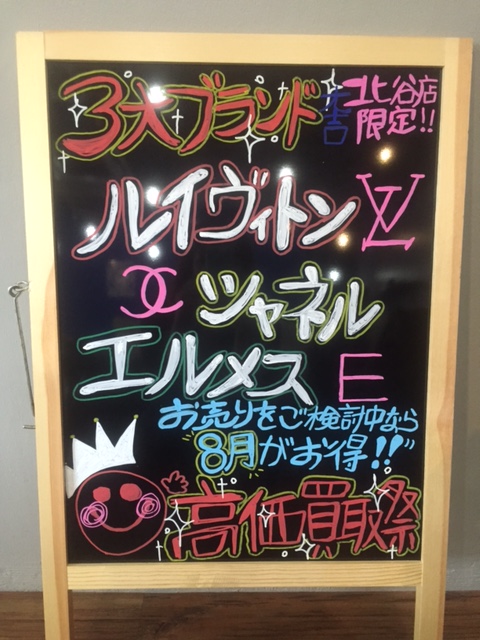 3大ブランド
北谷店
限定!!
ルイヴィトン LV
シャネル
エルメス E
お売りをご検討中なら
8月がお得!!
高価買取祭